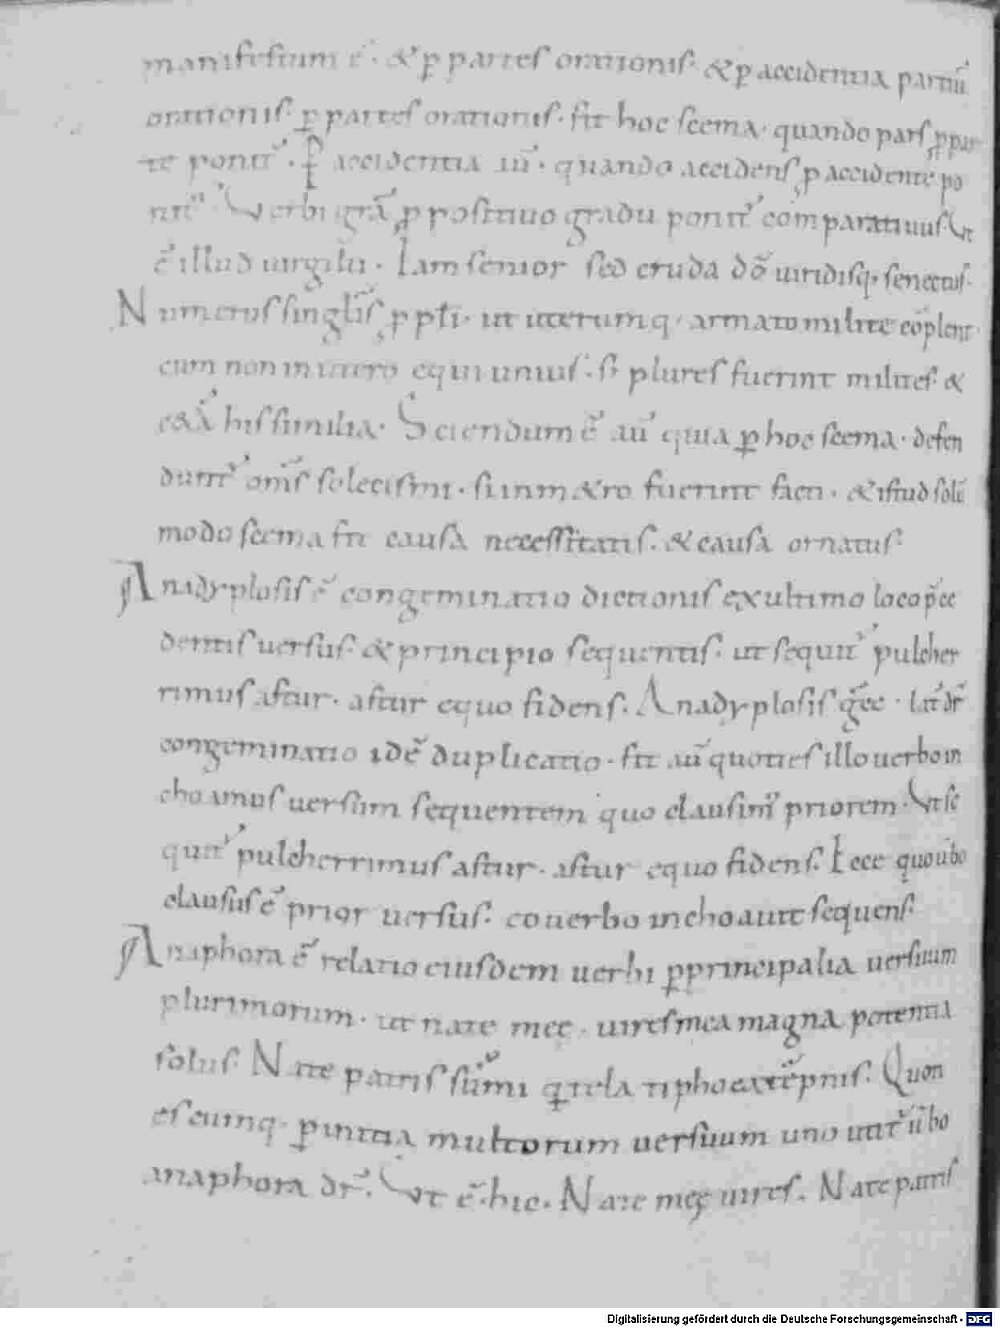 manifestum ē. & ꝑ partes orationis. & ꝑ accidentia partiū
orationis. ꝑ partes orationis. fit hoc scema. quando pars ꝑ par
te ponit᷑. P̱ accidentia aū. quando accidens ꝑ accidente po
nit᷑. Verbi grā ꝑ positivo gradu ponit᷑ comparativus Vt
ē illud uirgilii. Iam senior sed cruda dō uiridisq. senectus.
Numerus singłis ꝓ płi. ut uterumq. armato milite cōplent.
cum non in utero equi unius. s; plures fuerint milites. &
& his similia. Sciendum ē aū quia ꝑ hoc scema. defen
dunt᷑ om̄s solecismi. si in m&ro fuerint facti. & istud soli
modo scema fit causa necessitatis. & causa ornatus.
Anadyplosis ē congeminatio dictionis ex ultimo loco p̄ce
dentis uersus. & principio sequentis. ut sequit᷑ pulcher
rimus astur. astur equo fidens. Anadyplosis grece. lat̄ dr̄
congeminatio idē duplicatio. fit aū quoties illo uerbo in
choamus uersum sequentem quo clausim᷑ priorem. Vt se
quit᷑ pulcherrimus astur. astur equo fidens. Ecce quo ūbo
clausus ē prior uersus. eo uerbo inchoauit sequens.
Anaphora ē relatio eiusdem uerbi ꝑ principalia uersuum
plurimorum. ut nate mee. uires mea magna potentia
solus. Nate patris sūmi q̱ tela tiphoea tēpnis. Quon
escumq. ꝑ initia multorum uersuum uno utit᷑ ūbo
anaphora dr̄. Vt ē hic. Nate meę uires. Nate patris
Digitalisierung gefördert durch die Deutsche Forschungsgemeinschaft - DFG